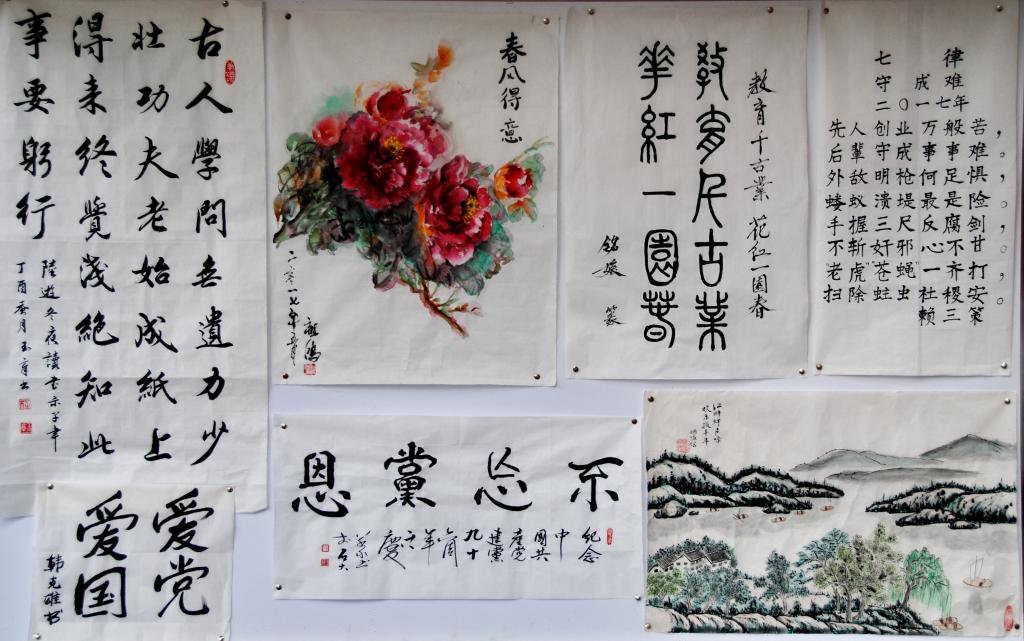 古人學問無遺力少
壯功夫老始成紙上
得来終覺淺絕知此
事要躬行
陸遊冬夜讀書示子聿
春风得意
二〇一七年
教育千古業 花红一園春
教育千古業
華紅一園春
七律
守成难
二〇一七年
先人创业万般苦，
后辈守成事事难。
外敌明枪何足惧，
蝼蚁溃堤最是险。
手握三尺反腐剑，
不斩奸邪心不甘。
老虎"苍蝇"一齐打，
扫除蛀虫社稷安。
赖三策
不忘黨恩
纪念
中
國共
產党
建黨
九十
六周
年
之
慶
爱党
爱国
韩克雄书